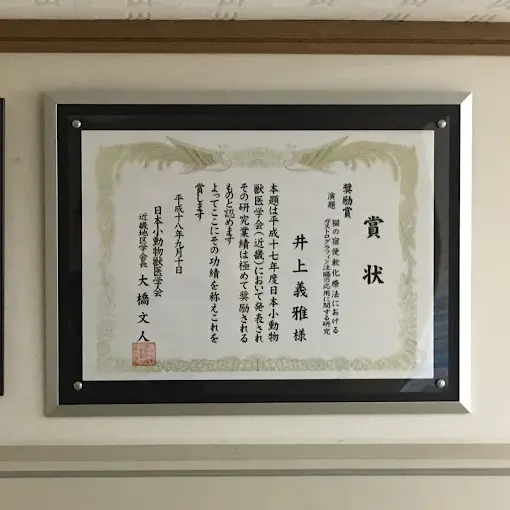 賞状
奨励賞
演題 猫の宿便軟化療法における
ガストログラフィン注腸の応用に関する研究
井上義雅様
本題は平成十七年度日本小動物
獣医学会(近畿)において発表され
その研究業績は極めて奨励される
ものと認めます
よってここにその功績を称えこれを
賞します
平成十八年九月十日
日本小動物獣医学会
近畿地区学会長 大橋文人